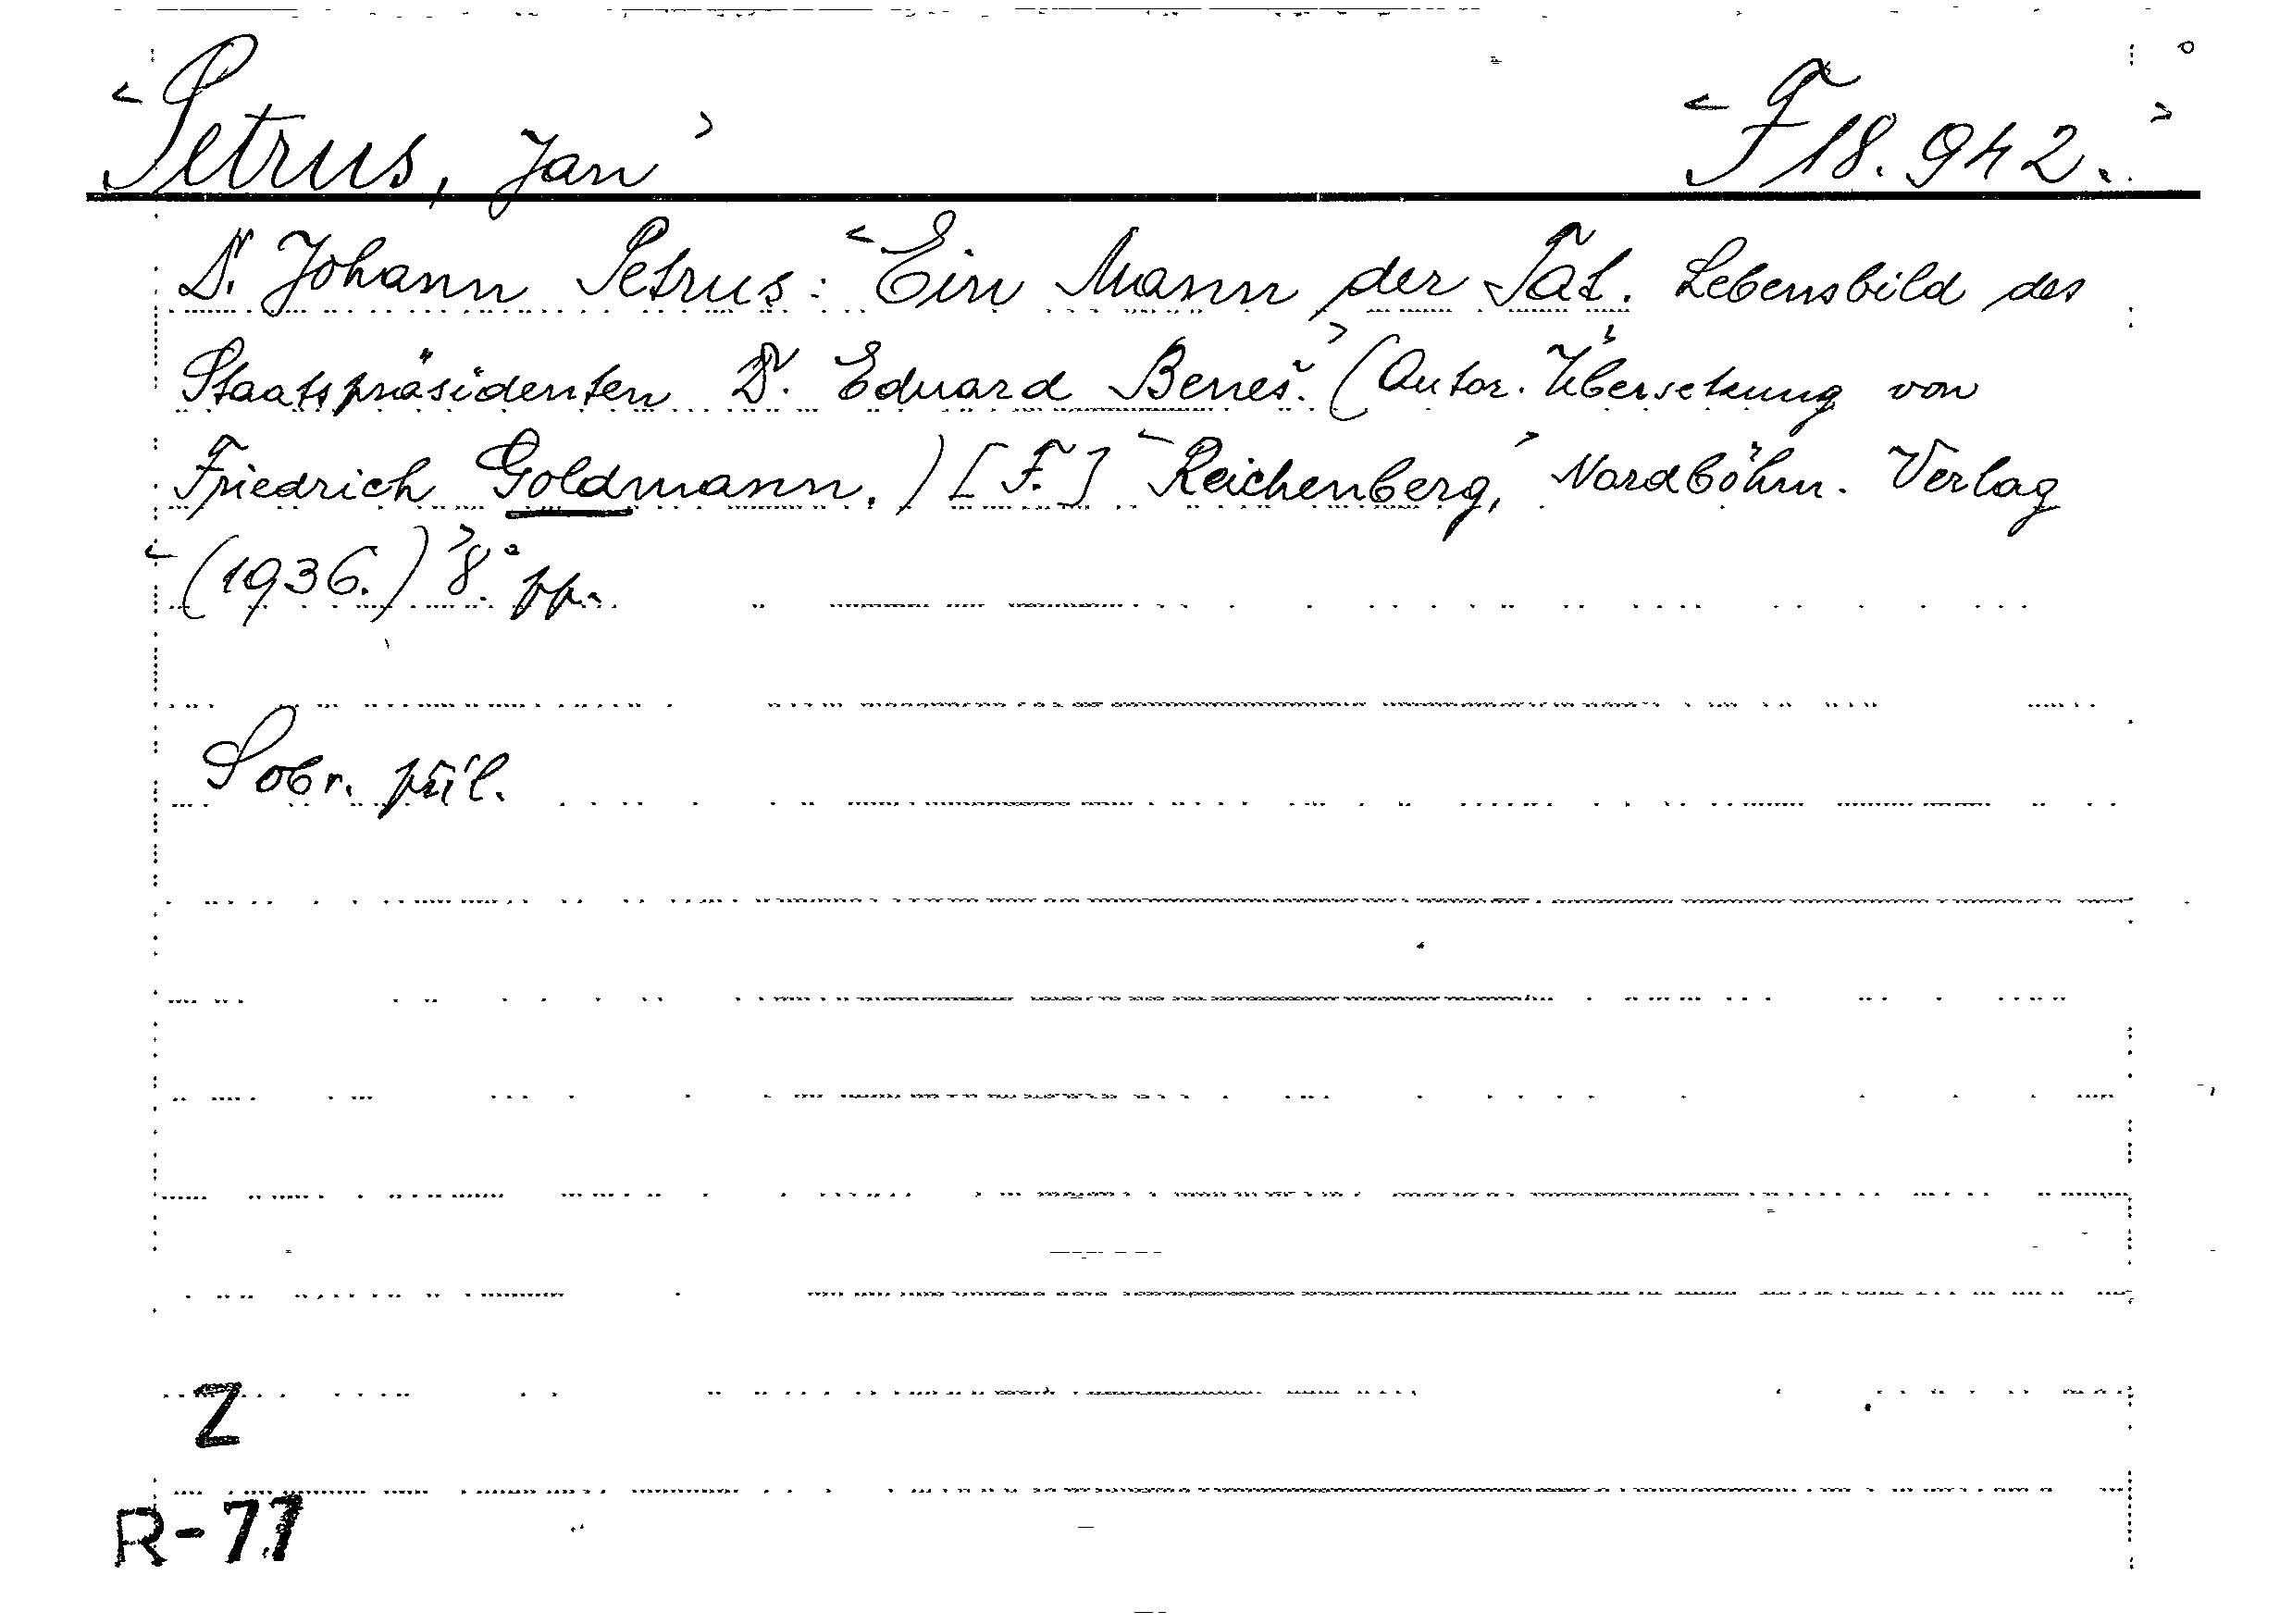 <Petrus, Jan> <F 18.942.>
Dr. Johann Petrus: <Ein Mann der Tat. Lebensbild des
Staatspräsidenten Dr. Eduard Beneš.> (Autor. Übersetzung von
Friedrich Goldmann.) [F.] <Reichenberg,> Nordböhm. Verlag
<(1936.)> 8.° pp.
S obr. příl.
Z
R-77